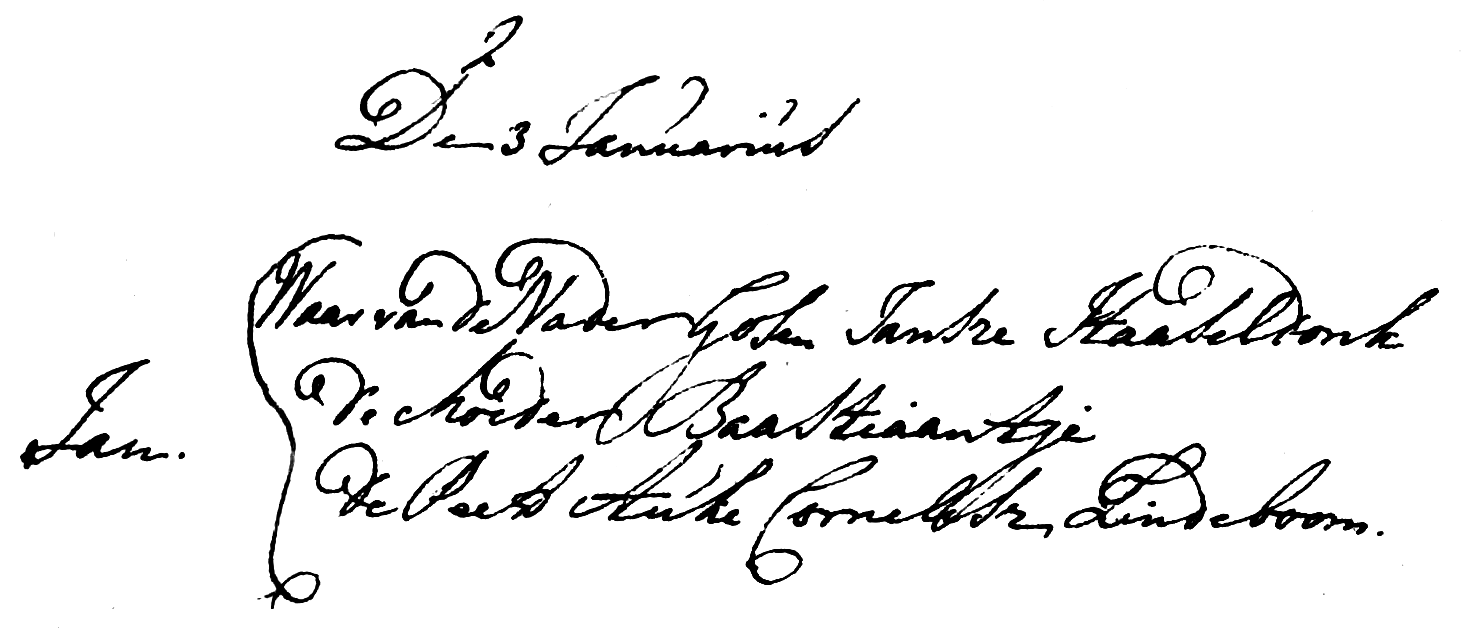 Den 3 Januarius
Waar van de Vader Gosen Janse Haaseldonk
Jan. de Moeder Baastiaantje
de Peet Anke Cornelisse Lindeboom.